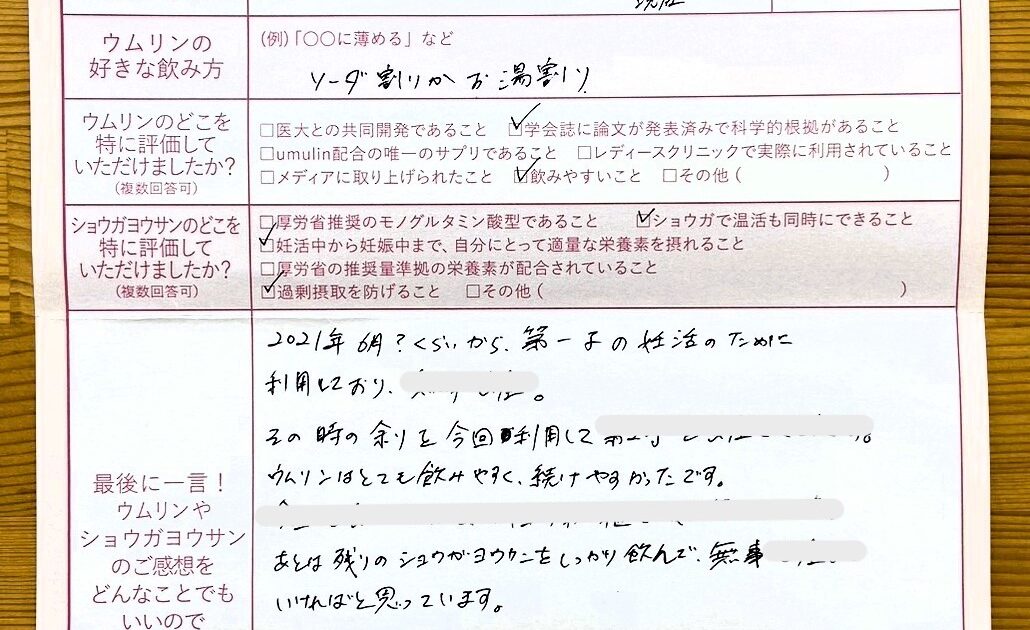 現在
ウムリンの
好きな飲み方
(例)「〇〇に薄める」など
ソーダ割りかお湯割り
ウムリンのどこを
特に評価して
いただけましたか?
(複数回答可)
□医大との共同開発であること ☑学会誌に論文が発表済みで科学的根拠があること
□umulin配合の唯一のサプリであること □レディースクリニックで実際に利用されていること
□メディアに取り上げられたこと ☑飲みやすいこと □その他( )
ショウガヨウサンのどこを
特に評価して
いただけましたか?
(複数回答可)
□厚労省推奨のモノグルタミン酸型であること ☑ショウガで温活も同時にできること
☑妊活中から妊娠中まで、自分にとって適量な栄養素を摂れること
□厚労省の推奨量準拠の栄養素が配合されていること
☑過剰摂取を防げること □その他( )
最後に一言!
ウムリンや
ショウガヨウサン
のご感想を
どんなことでも
いいので
2021年6月?くらいから、第一子の妊活のために
利用しており、
その時の余りを今回利用して
ウムリンはとても飲みやすく、続けやすかったです。
あとは残りのショウガヨウサンをしっかり飲んで、無事
いければと思っています。